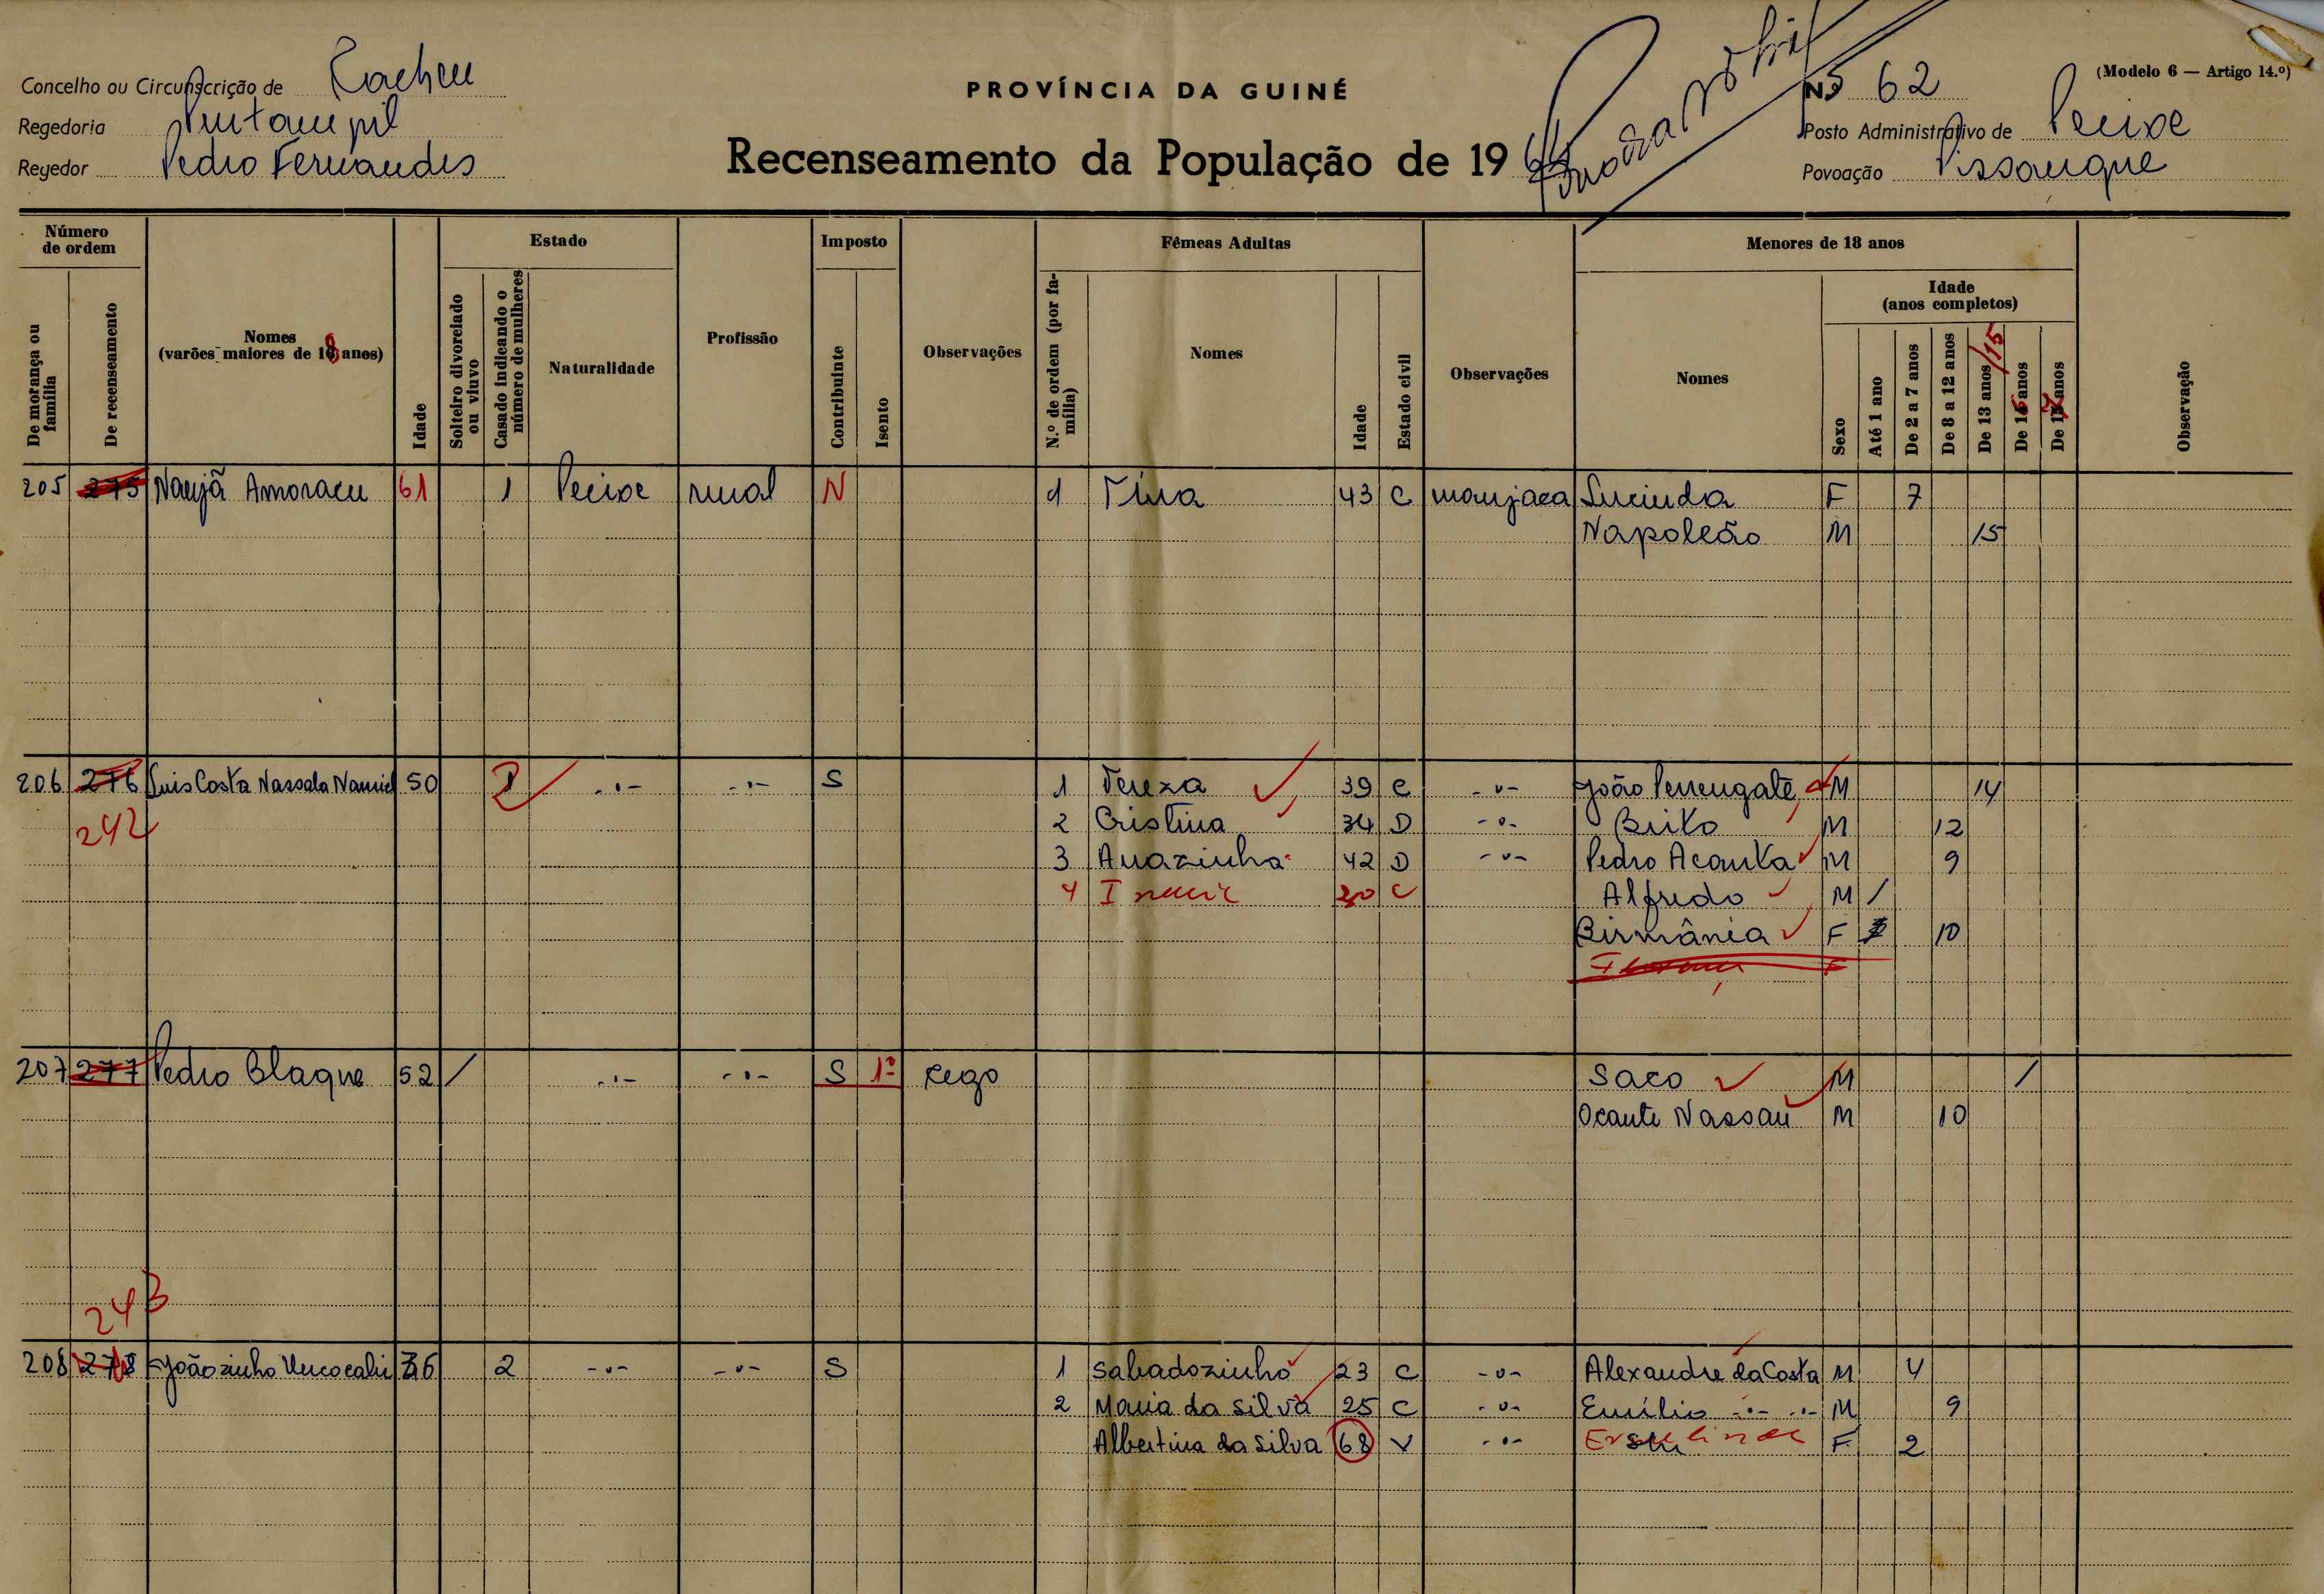 Concelho ou Circunscrição de Cacheu
PROVÍNCIA DA GUINÉ
Nº 62
(Modelo 6 — Artigo 14.º)
Regedoria
Posto Administrativo de Pecixe
Regedor Pedro Fernandes
Recenseamento da População de 19
Povoação
Número de ordem
Estado
Imposto
Fêmeas Adultas
Menores de 18 anos
De morança ou família
De recenseamento
Nomes (varões maiores de 18 anos)
Idade
Solteiro divorciado ou viuvo
Casado indicando o número de mulheres
Naturalidade
Profissão
Contribuinte
Isento
Observações
N.º de ordem (por família)
Nomes
Idade
Estado civil
Observações
Nomes
Sexo
Idade (anos completos)
Até 1 ano
De 2 a 7 anos
De 8 a 12 anos
De 13 anos /15
De 16 anos
De 17 anos
Observação
205 275 61 1 Pecixe rural N 1 43 C manjaca Lucinda F 7
Napoleão M 15
206 276 Luis Costa Nassala 50 S 1 Tereza 39 C João M 14
242 2 Cristina 34 D Brito M 12
3 Anazinha 42 D Pedro M 9
4 30 C Alfredo M /
Birmânia F 10
207 277 Pedro Blaque 52 / S cego Saco M /
Ocante Nassau M 10
243
208 278 Joãozinho 36 2 S 1 Sabadozinho 23 C Alexandre da Costa M 4
2 Maria da Silva 25 C Emílio M 9
Albertina da Silva 68 V F 2